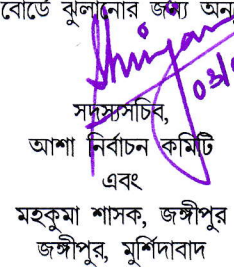 বোর্ডে ঝুলানোর জন্য অন
03/
সদস্যসচিব,
আশা নির্বাচন কমিটি
এবং
মহকুমা শাসক, জঙ্গীপুর
জঙ্গীপুর, মুর্শিদাবাদ